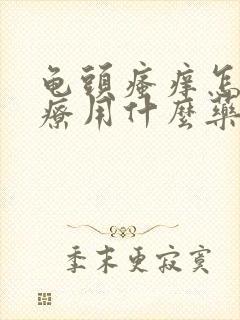 龟頭瘙癢怎
療用什麼藥
季末更寂寞